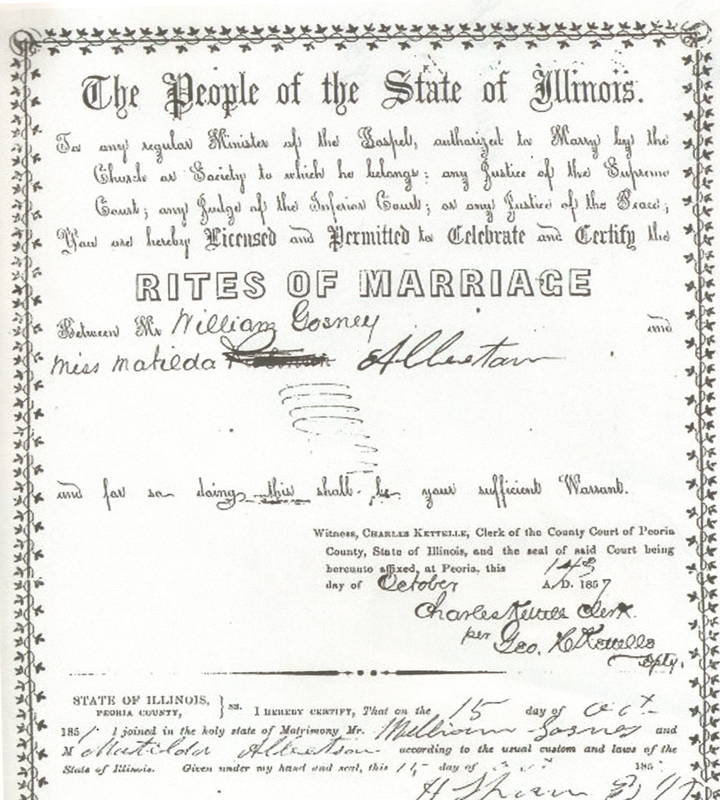 The People of the State of Illinois.
To any regular Minister of the Gospel, authorized to Marry by the
Church or Society to which he belongs: any Justice of the Supreme
Court; any Judge of the Inferior Court; or any Justice of the Peace;
You are hereby Licensed and Permitted to Celebrate and Certify the
RITES OF MARRIAGE
Between Mr William Gosney and
Miss Matilda Albertson
and for so doing this shall be your sufficient Warrant.
Witness, CHARLES KETTELLE, Clerk of the County Court of Peoria
County, State of Illinois, and the seal of said Court being
hereunto affixed, at Peoria, this 14th
day of October A.D. 1857
Charles Kettelle Clerk.
per Geo. Kettelle
Dpty.
STATE OF ILLINOIS,
PEORIA COUNTY, } ss. I HEREBY CERTIFY, That on the 15 day of Oct
185 I joined in the holy state of Matrimony Mr. William Gosney and
M Matilda Albertson according to the usual custom and laws of the
State of Illinois. Given under my hand and seal, this 15 day of 185